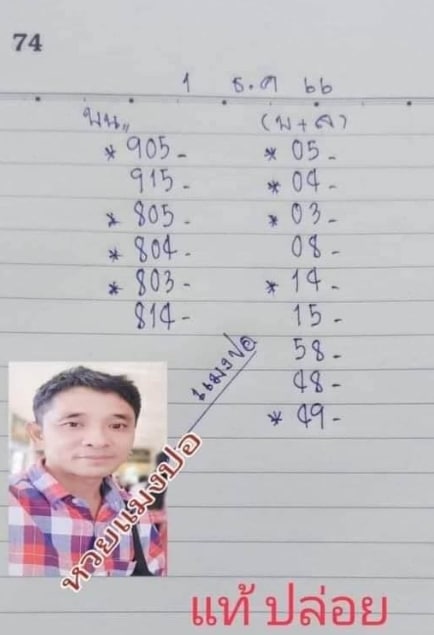 74
1 ธ.ค ๖๖
บน,, (บ+ล)
* 905 - * 05 -
915 - * 04 -
* 805 - * 03 -
* 804 - 08 -
* 803 - * 14 -
814 - 15 -
58 -
48 -
* 49 -
แมงปอ
หวยแมงปอ
แท้ ปล่อย